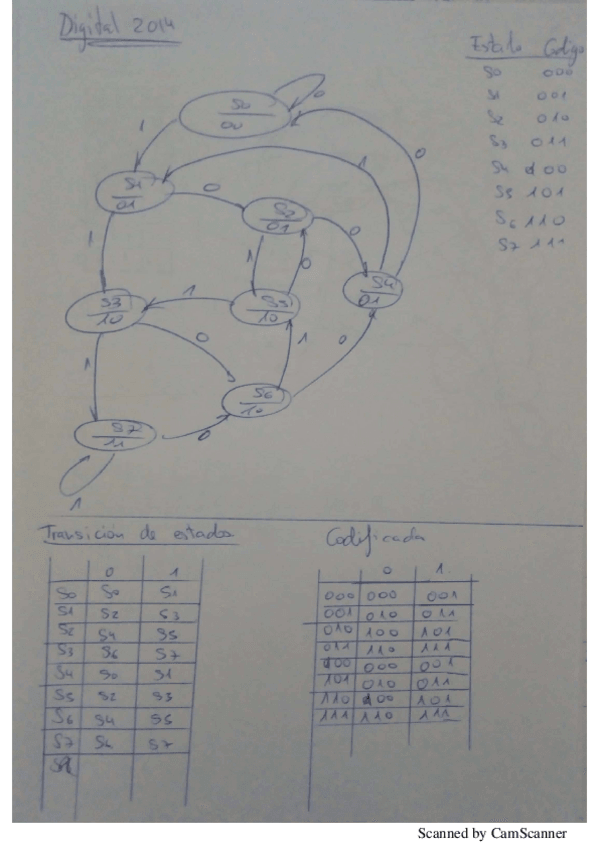 Digital 2014
Estado Codigo
S0 000
S1 001
S2 010
S3 011
S4 100
S5 101
S6 110
S7 111
0
S0
00
1
1
0
S1
01
0
S2
01
0
1
1
0
S4
01
S3
10
1
S5
10
0
1
0
1
S6
10
S7
11
0
1
Transición de estados
0 1
S0 S0 S1
S1 S2 S3
S2 S4 S5
S3 S6 S7
S4 S0 S1
S5 S2 S3
S6 S4 S5
S7 S6 S7
Codificada
0 1
000 000 001
001 010 011
010 100 101
011 110 111
100 000 001
101 010 011
110 100 101
111 110 111
Scanned by CamScanner